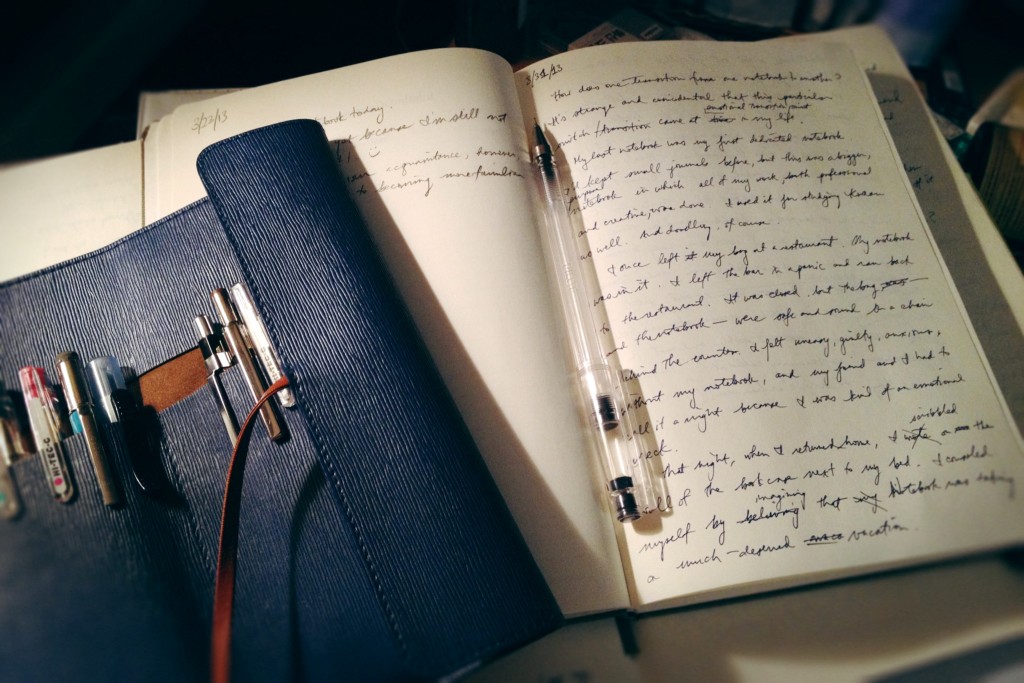 3/22/13
book today.
because I'm still not
! :)
acquaintance, however,
to becoming more familiar
3/31/13
How does one transition from one notebook to another?
It's strange and coincidental that this particular
emotional transition point
switch/transition came at a in my life.
My last notebook was my first dedicated notebook
I'd kept small journals before, but this was a bigger,
purpose
notebook in which all of my work, both professional
and creative, was done. I used it for studying Korean
as well. And doodling, of course.
I once left my bag at a restaurant. My notebook
was in it. I left the bar in a panic and ran back
to the restaurant. It was closed, but the bag
and the notebook — were safe and sound on a chair
behind the counter. I felt uneasy, guilty, anxious,
without my notebook, and my friend and I had to
call it a night because I was kind of an emotional
wreck.
scribbled
That night, when I returned home, I wrote a on the
wall of the bookcase next to my bed. I consoled
imagining
myself by believing that my Notebook was taking
a much-deserved vacation.
HI-TEC-C